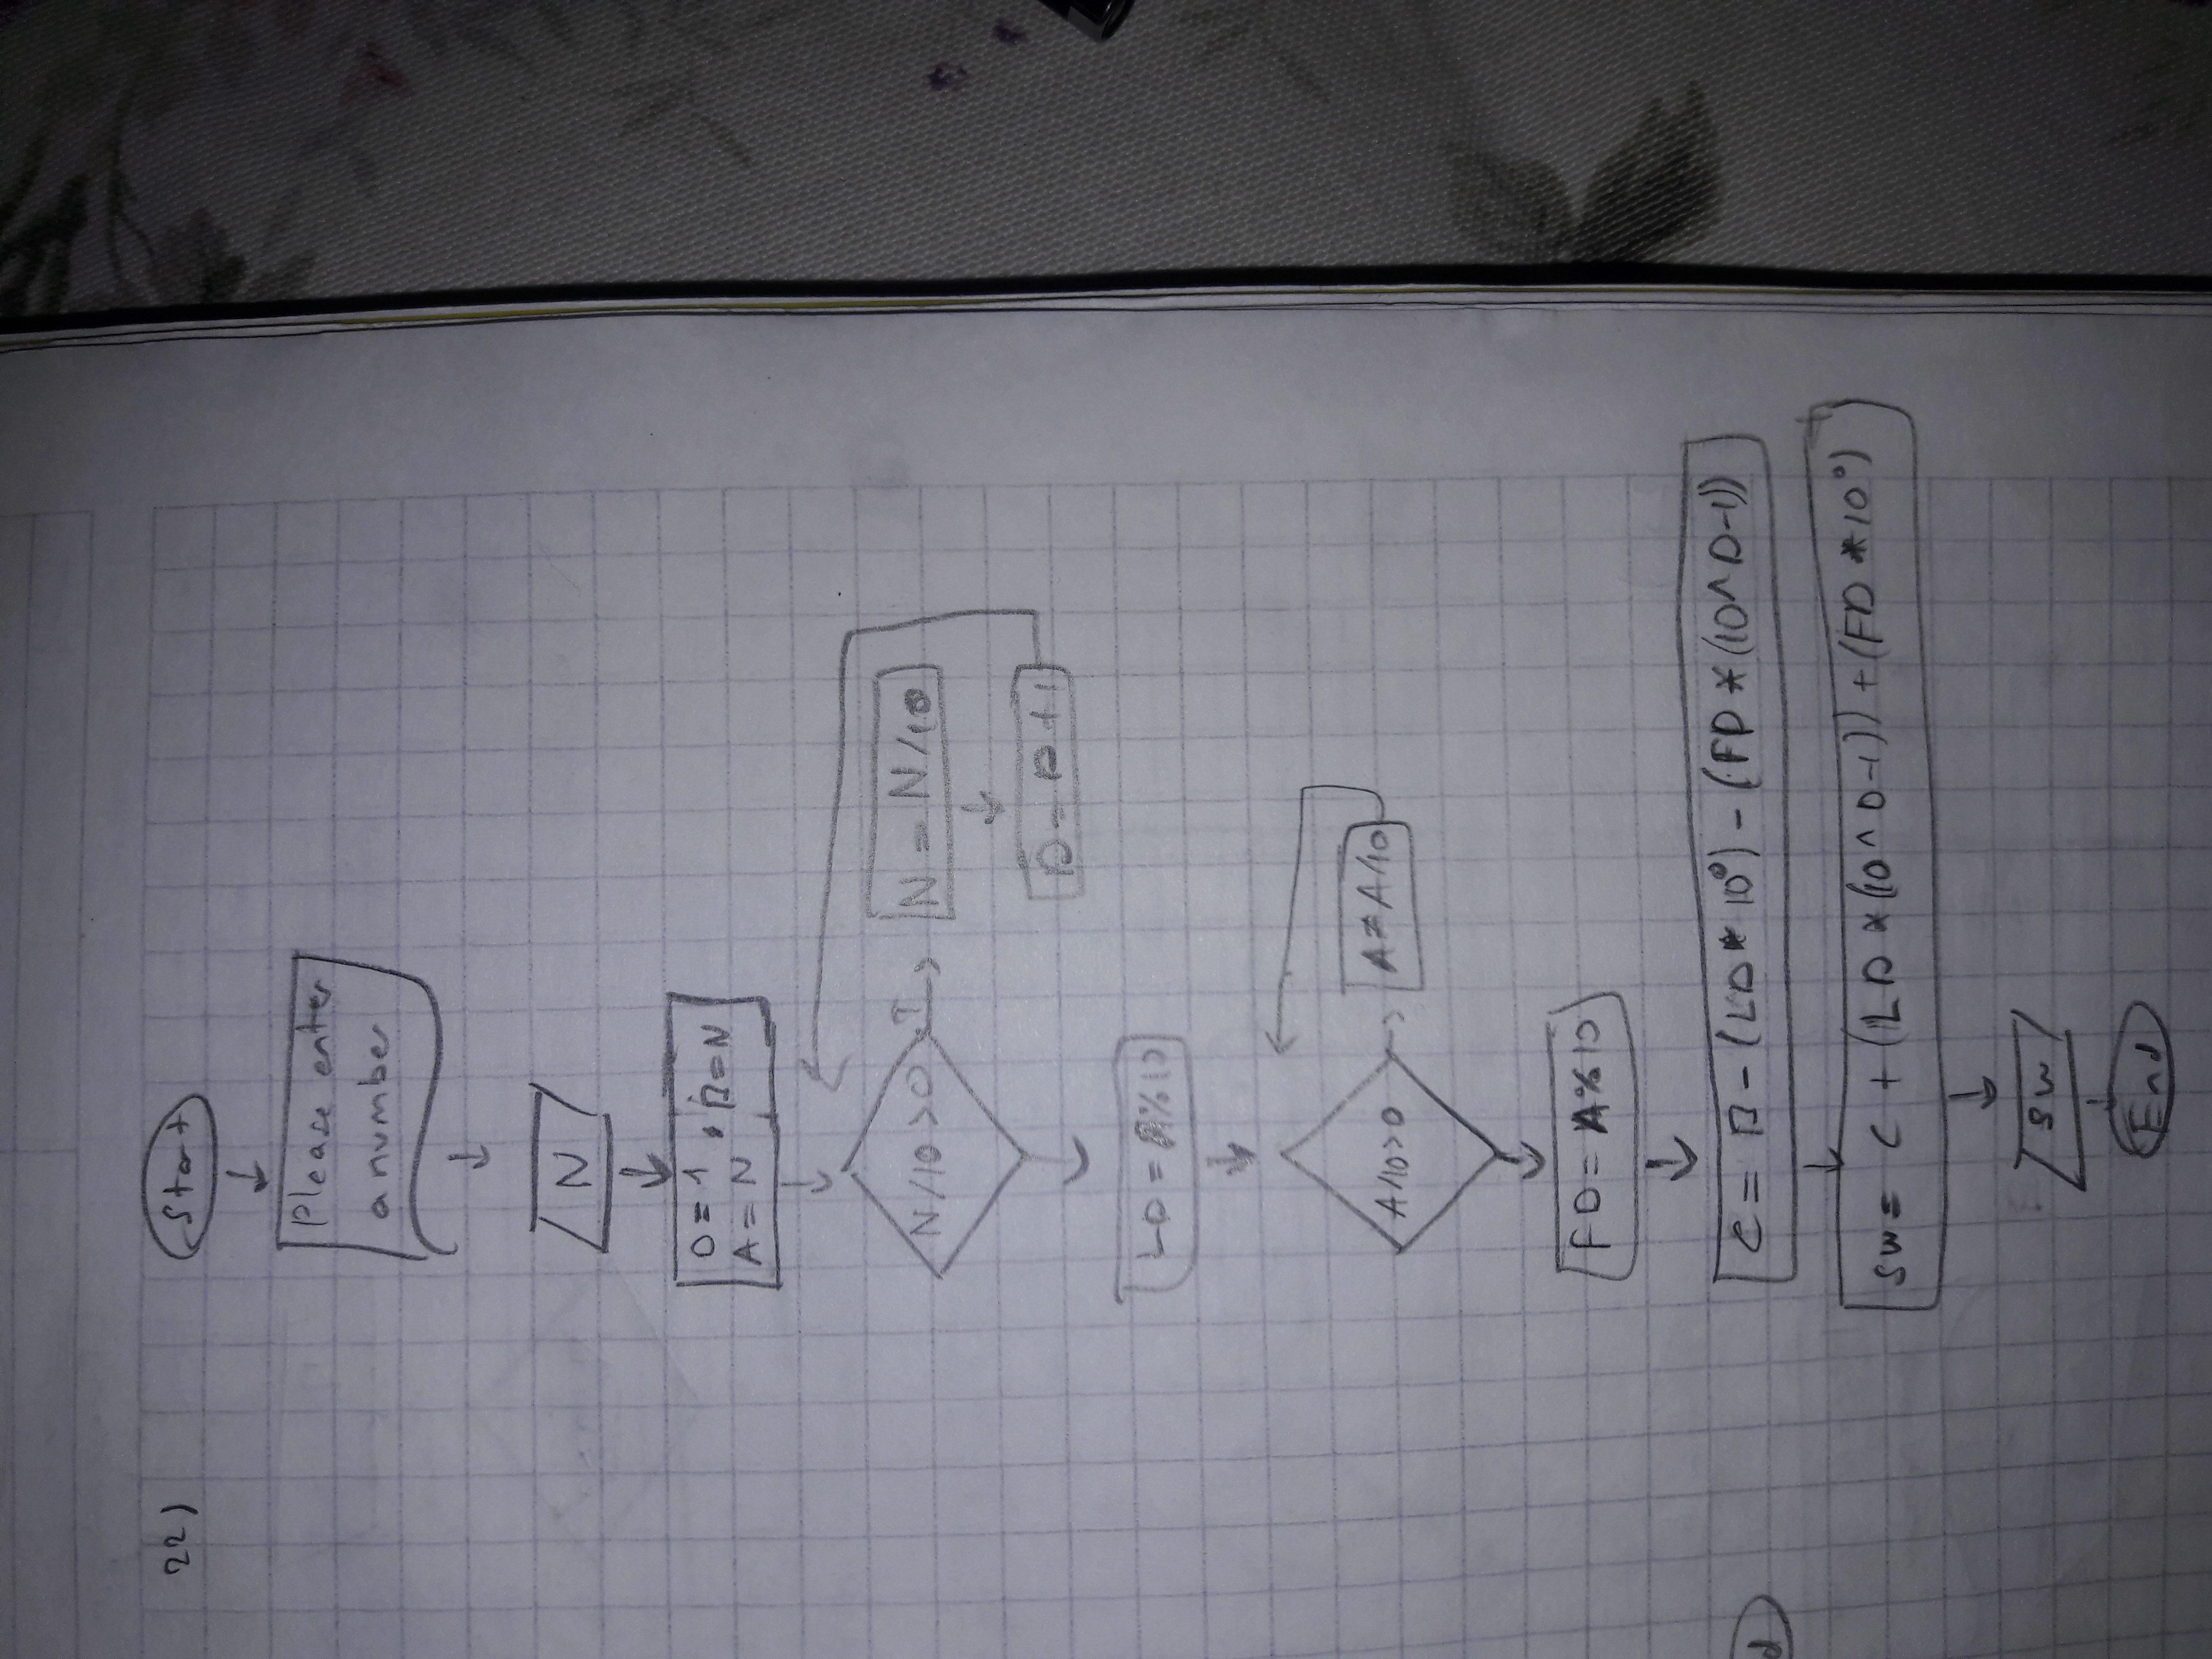 22)
Start
Please enter
a number
N
D = 1
A = N
B = N
N/10 > 0
T
N = N/10
D = D + 1
LD = A%10
A/10 > 0
A = A/10
FD = A%10
C = B - (LD * 10⁰) - (FD * (10^D-1))
SW = C + (LD * (10^D-1)) + (FD * 10⁰)
SW
End